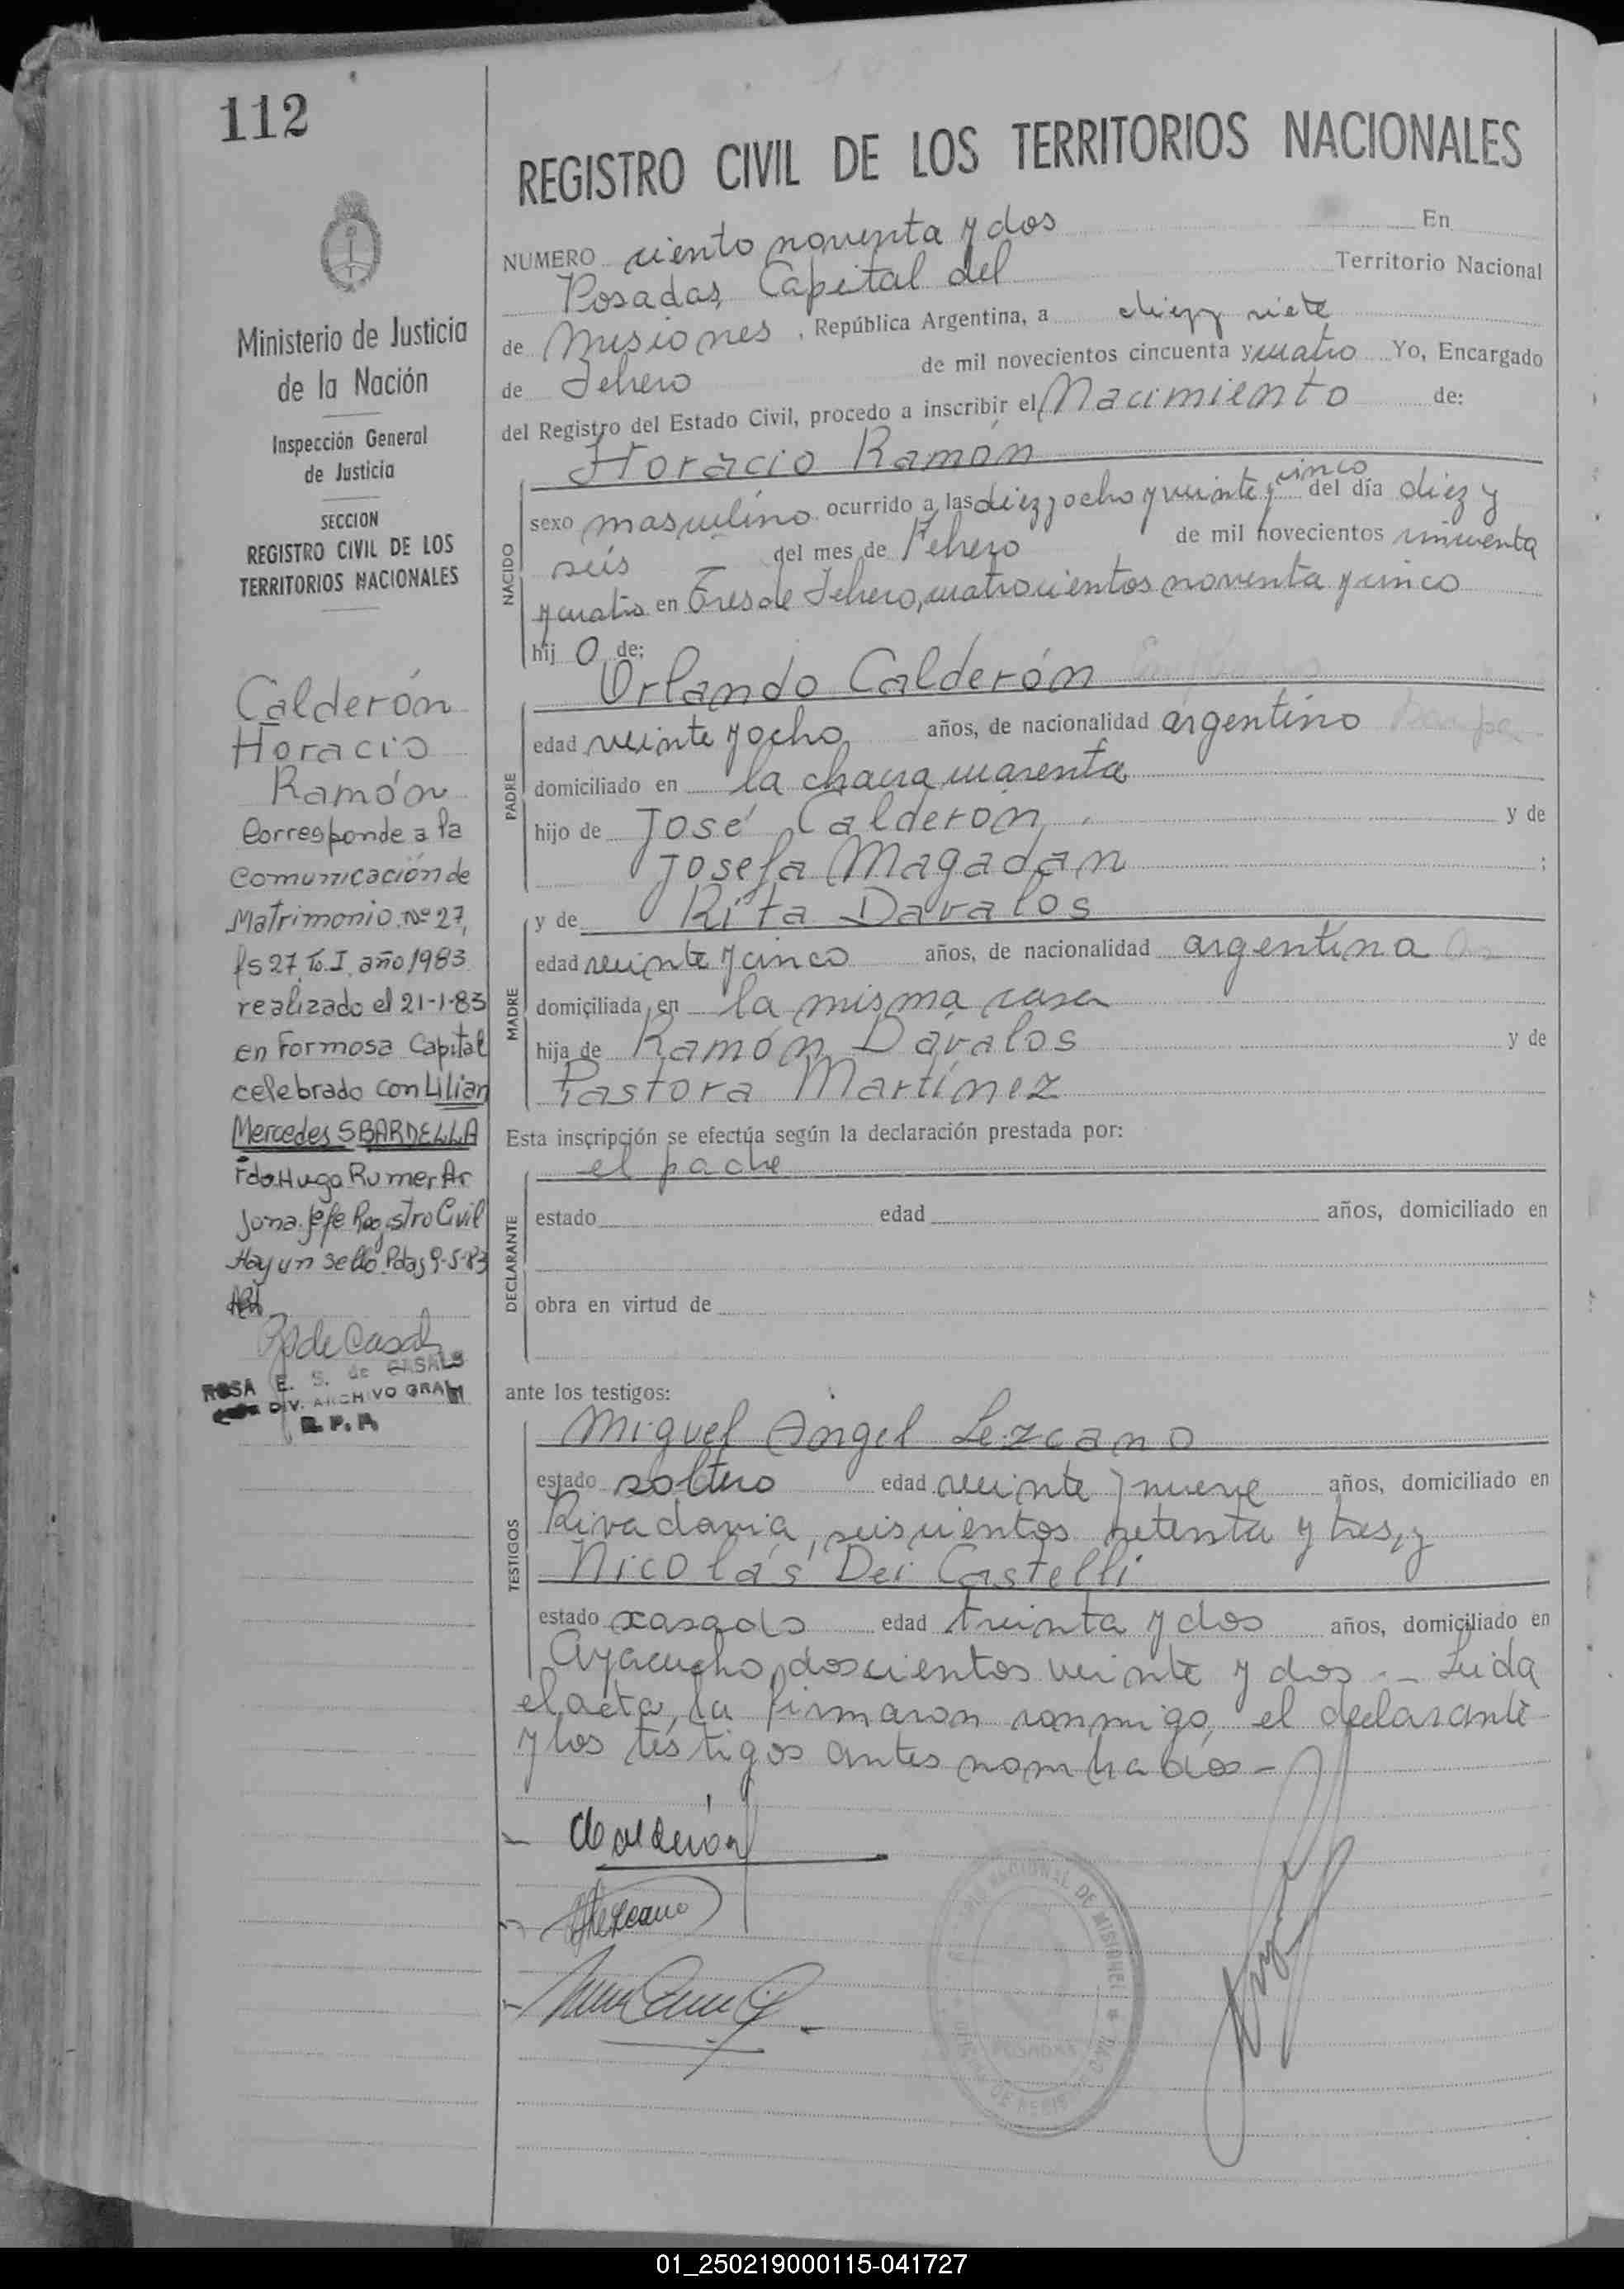 112
Ministerio de Justicia
de la Nación
Inspección General
de Justicia
SECCION
REGISTRO CIVIL DE LOS
TERRITORIOS NACIONALES
Calderón
Horacio
Ramón
Corresponde a la
Comunicación de
Matrimonio Nº 27,
fs 27, To. I, año 1983
realizado el 21-1-83
en Formosa Capital
celebrado con Lilian
Mercedes SBARDELLA
Fdo. Hugo Rumer Ar
jona. Jefe Registro Civil
Hay un sello. Pdas 9-5-83
ROSA E. S. de CASALS
DIV. ARCHIVO GRAL
R. P. P.
REGISTRO CIVIL DE LOS TERRITORIOS NACIONALES
NUMERO ciento noventa y dos En
Posadas, Capital del Territorio Nacional
de Misiones, República Argentina, a diez y siete
de Febrero de mil novecientos cincuenta y cuatro Yo, Encargado
del Registro del Estado Civil, procedo a inscribir el Nacimiento de:
Horacio Ramón
NACIDO
sexo masculino ocurrido a las diez y ocho y veinte y cinco del día diez y
seis del mes de Febrero de mil novecientos cincuenta
y cuatro en Tres de Febrero, cuatrocientos noventa y cinco
hij o de:
Orlando Calderón
PADRE
edad veinte y ocho años, de nacionalidad argentino
domiciliado en la chacra cuarenta
hijo de José Calderón y de
Josefa Magadan ;
y de Rita Davalos
MADRE
edad veinte y cinco años, de nacionalidad argentina
domiciliada en la misma casa
hija de Ramón Dávalos y de
Pastora Martínez
Esta inscripción se efectúa según la declaración prestada por:
el padre
DECLARANTE
estado edad años, domiciliado en
obra en virtud de
ante los testigos:
Miguel Angel Lezcano
TESTIGOS
estado soltero edad veinte y nueve años, domiciliado en
Rivadavia, seiscientos setenta y tres, y
Nicolás Dei Castelli
estado casado edad treinta y dos años, domiciliado en
Ayacucho, doscientos veinte y dos.- Leida
el acta, la firmaron conmigo, el declarante
y los testigos antes nombrados-
Calderón
Lezcano
NACIONAL DE MISIONES
POSADAS
01_250219000115-041727